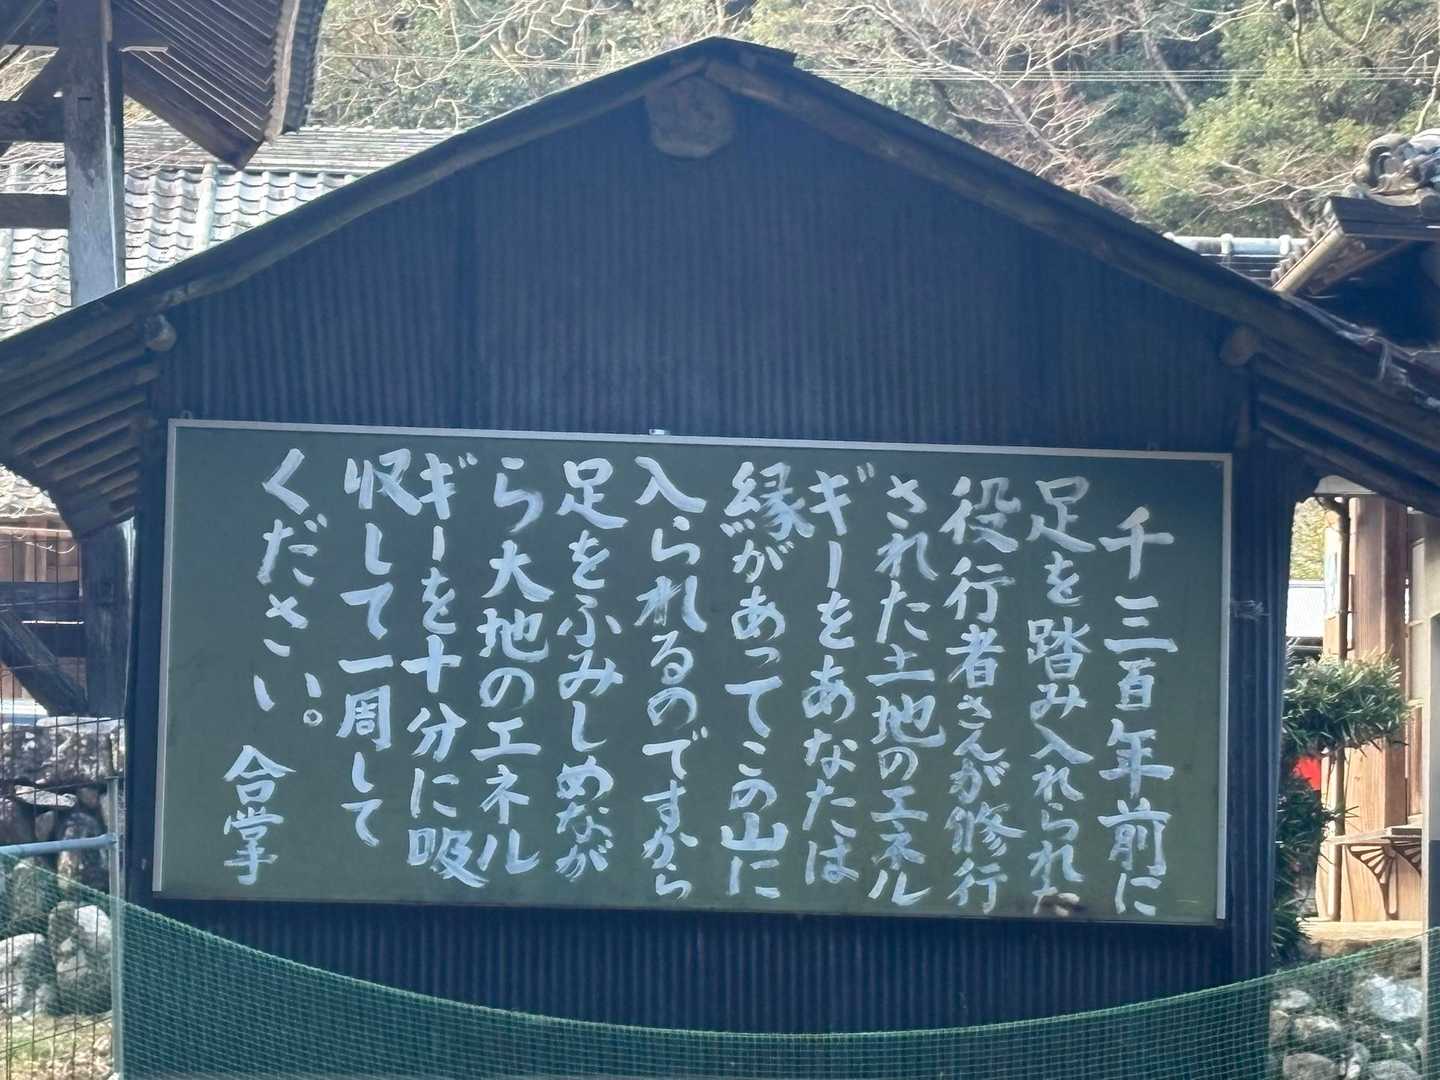 千三百年前に
足を踏み入れられた
役行者さんが修行
された土地のエネル
ギーをあなたは
縁があってこの山に
入られるのですから
足をふみしめなが
ら大地のエネル
ギーを十分に吸
収して一周して
ください。
合掌